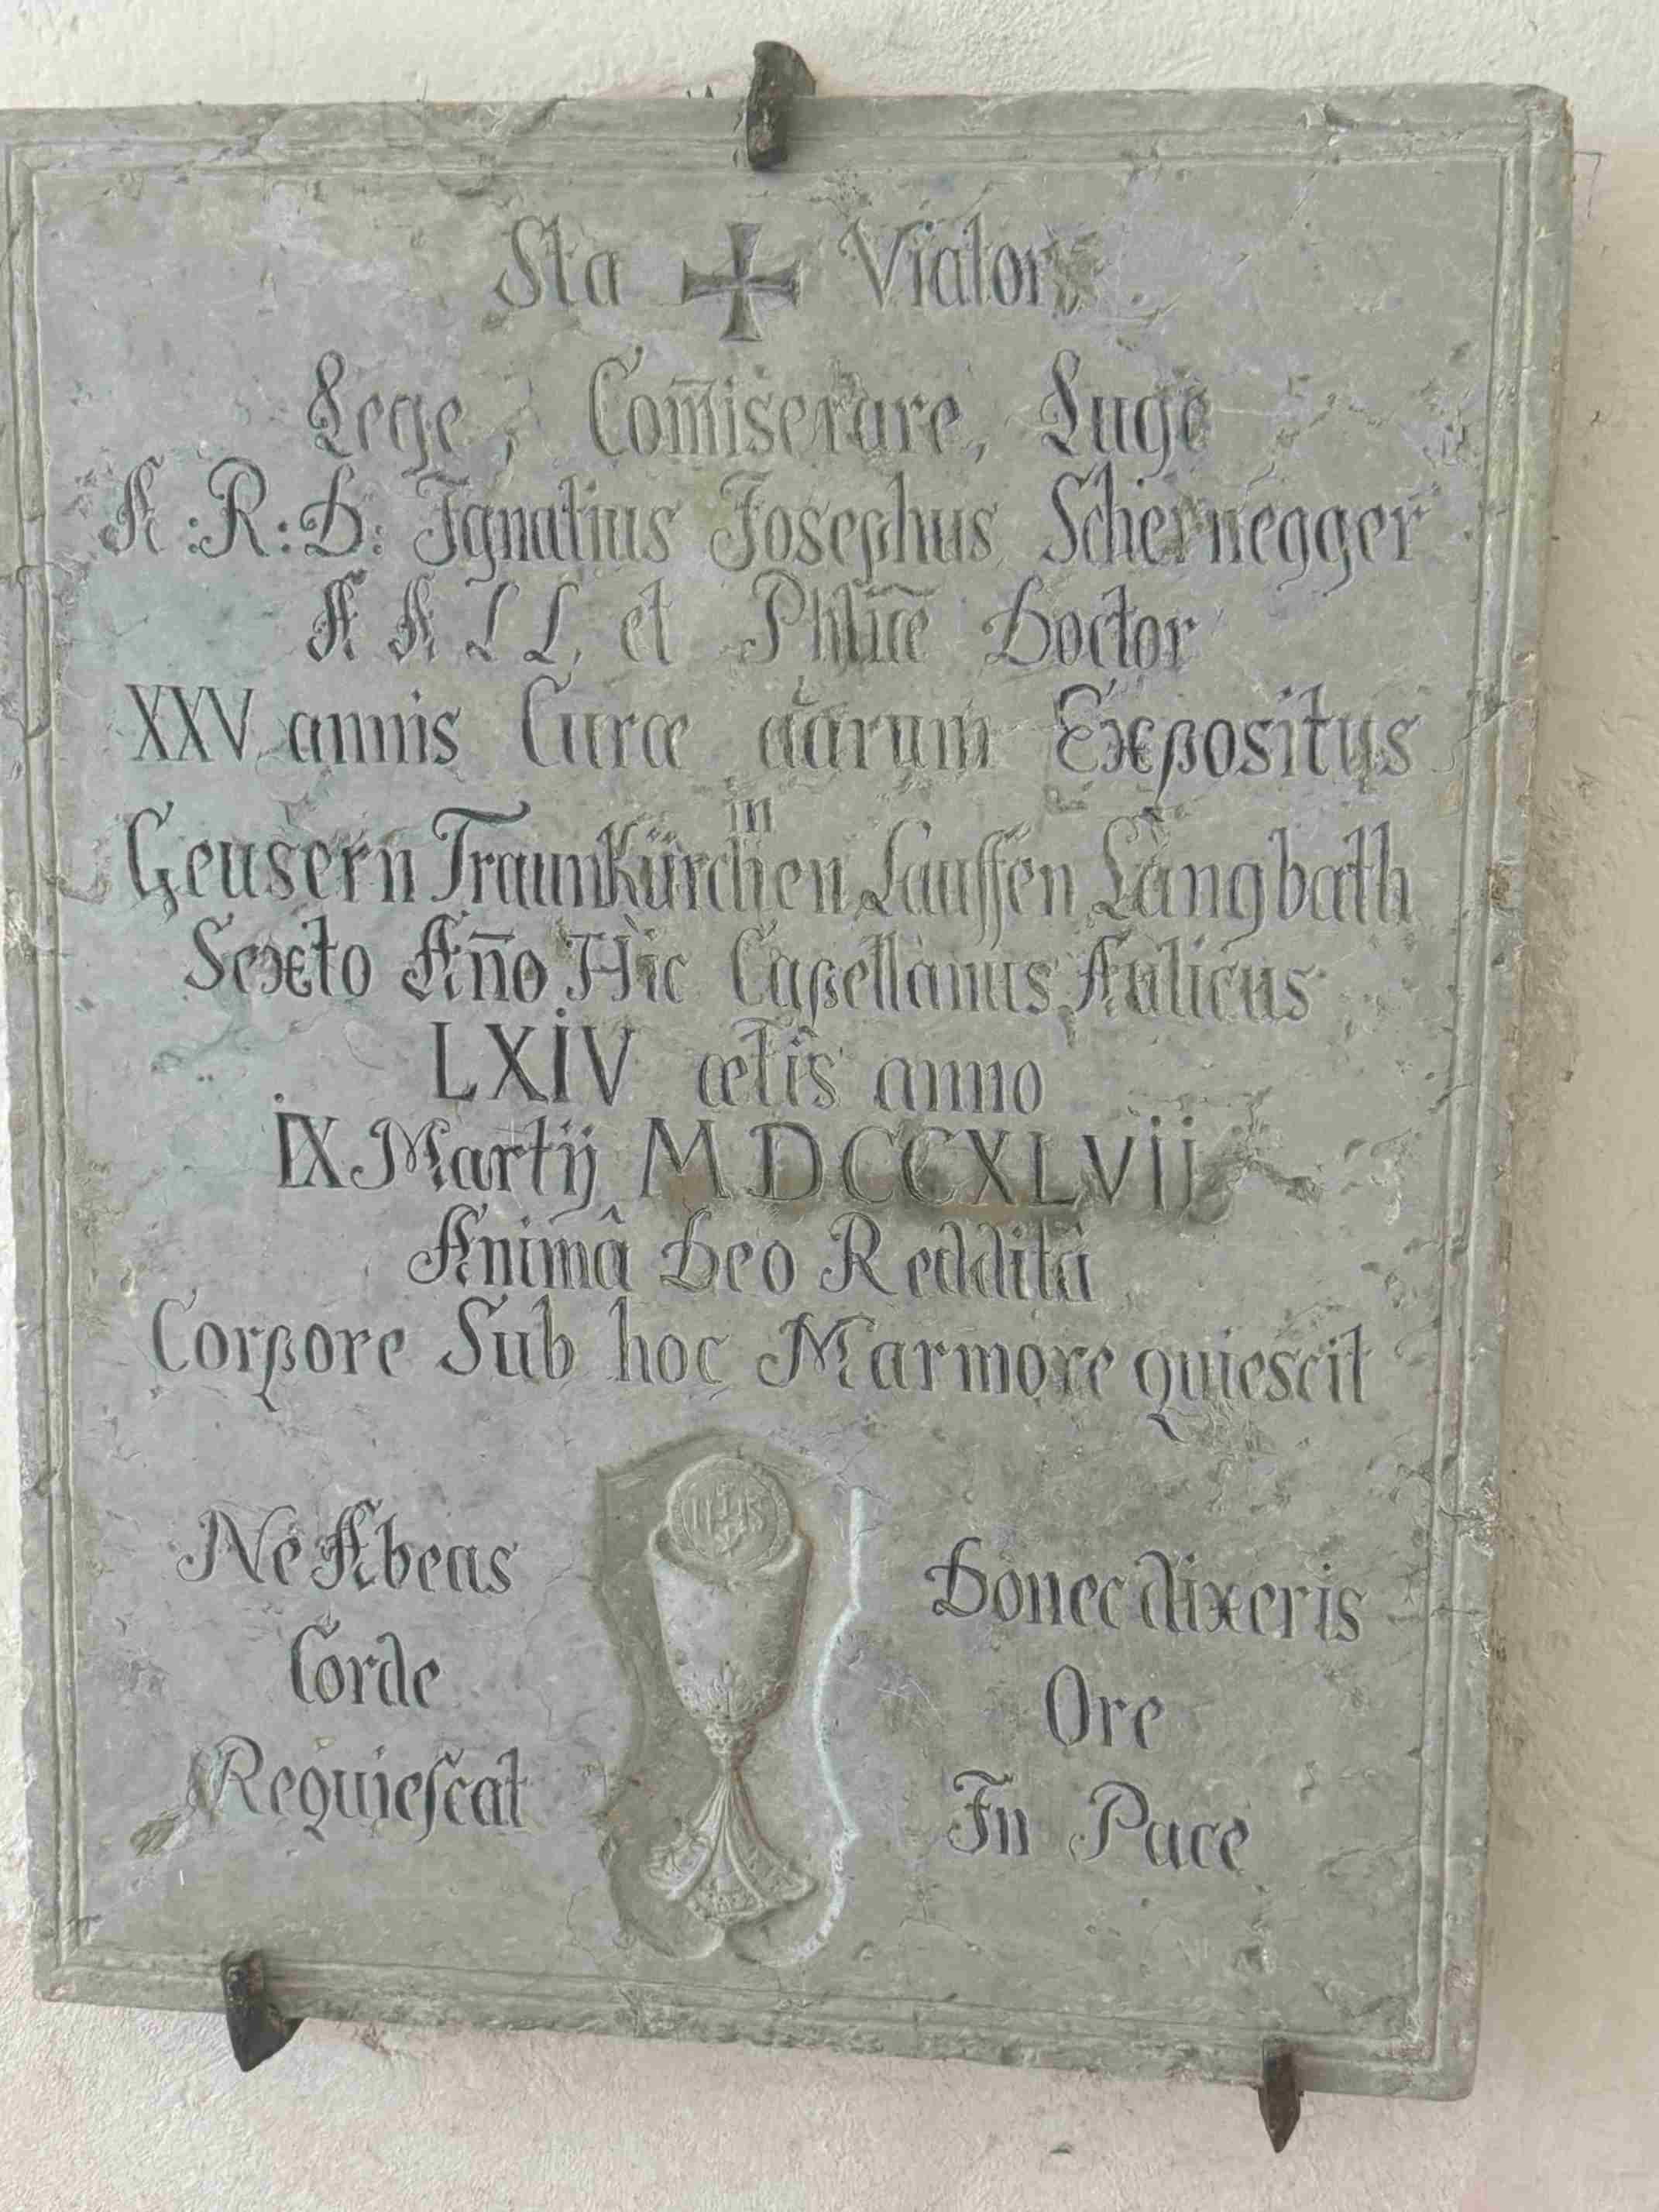 Sta Viator
Lege, Com̄iserare, Luge
A:R:D: Ignatius Josephus Schernegger
A A L L et Philicē Doctor
XXV annis Curæ aārum Expositus
in
Geusern Traunkürchen Lauffen Langbath
Sexto An̄o Hic Capellanus Aulicus
LXIV ætis anno
IX Martij MDCCXLVII
Animâ Deo Redditâ
Corpore Sub hoc Marmore quiescit
Ne Abeas Donec dixeris
Corde Ore
Requieſcat In Pace
IHS